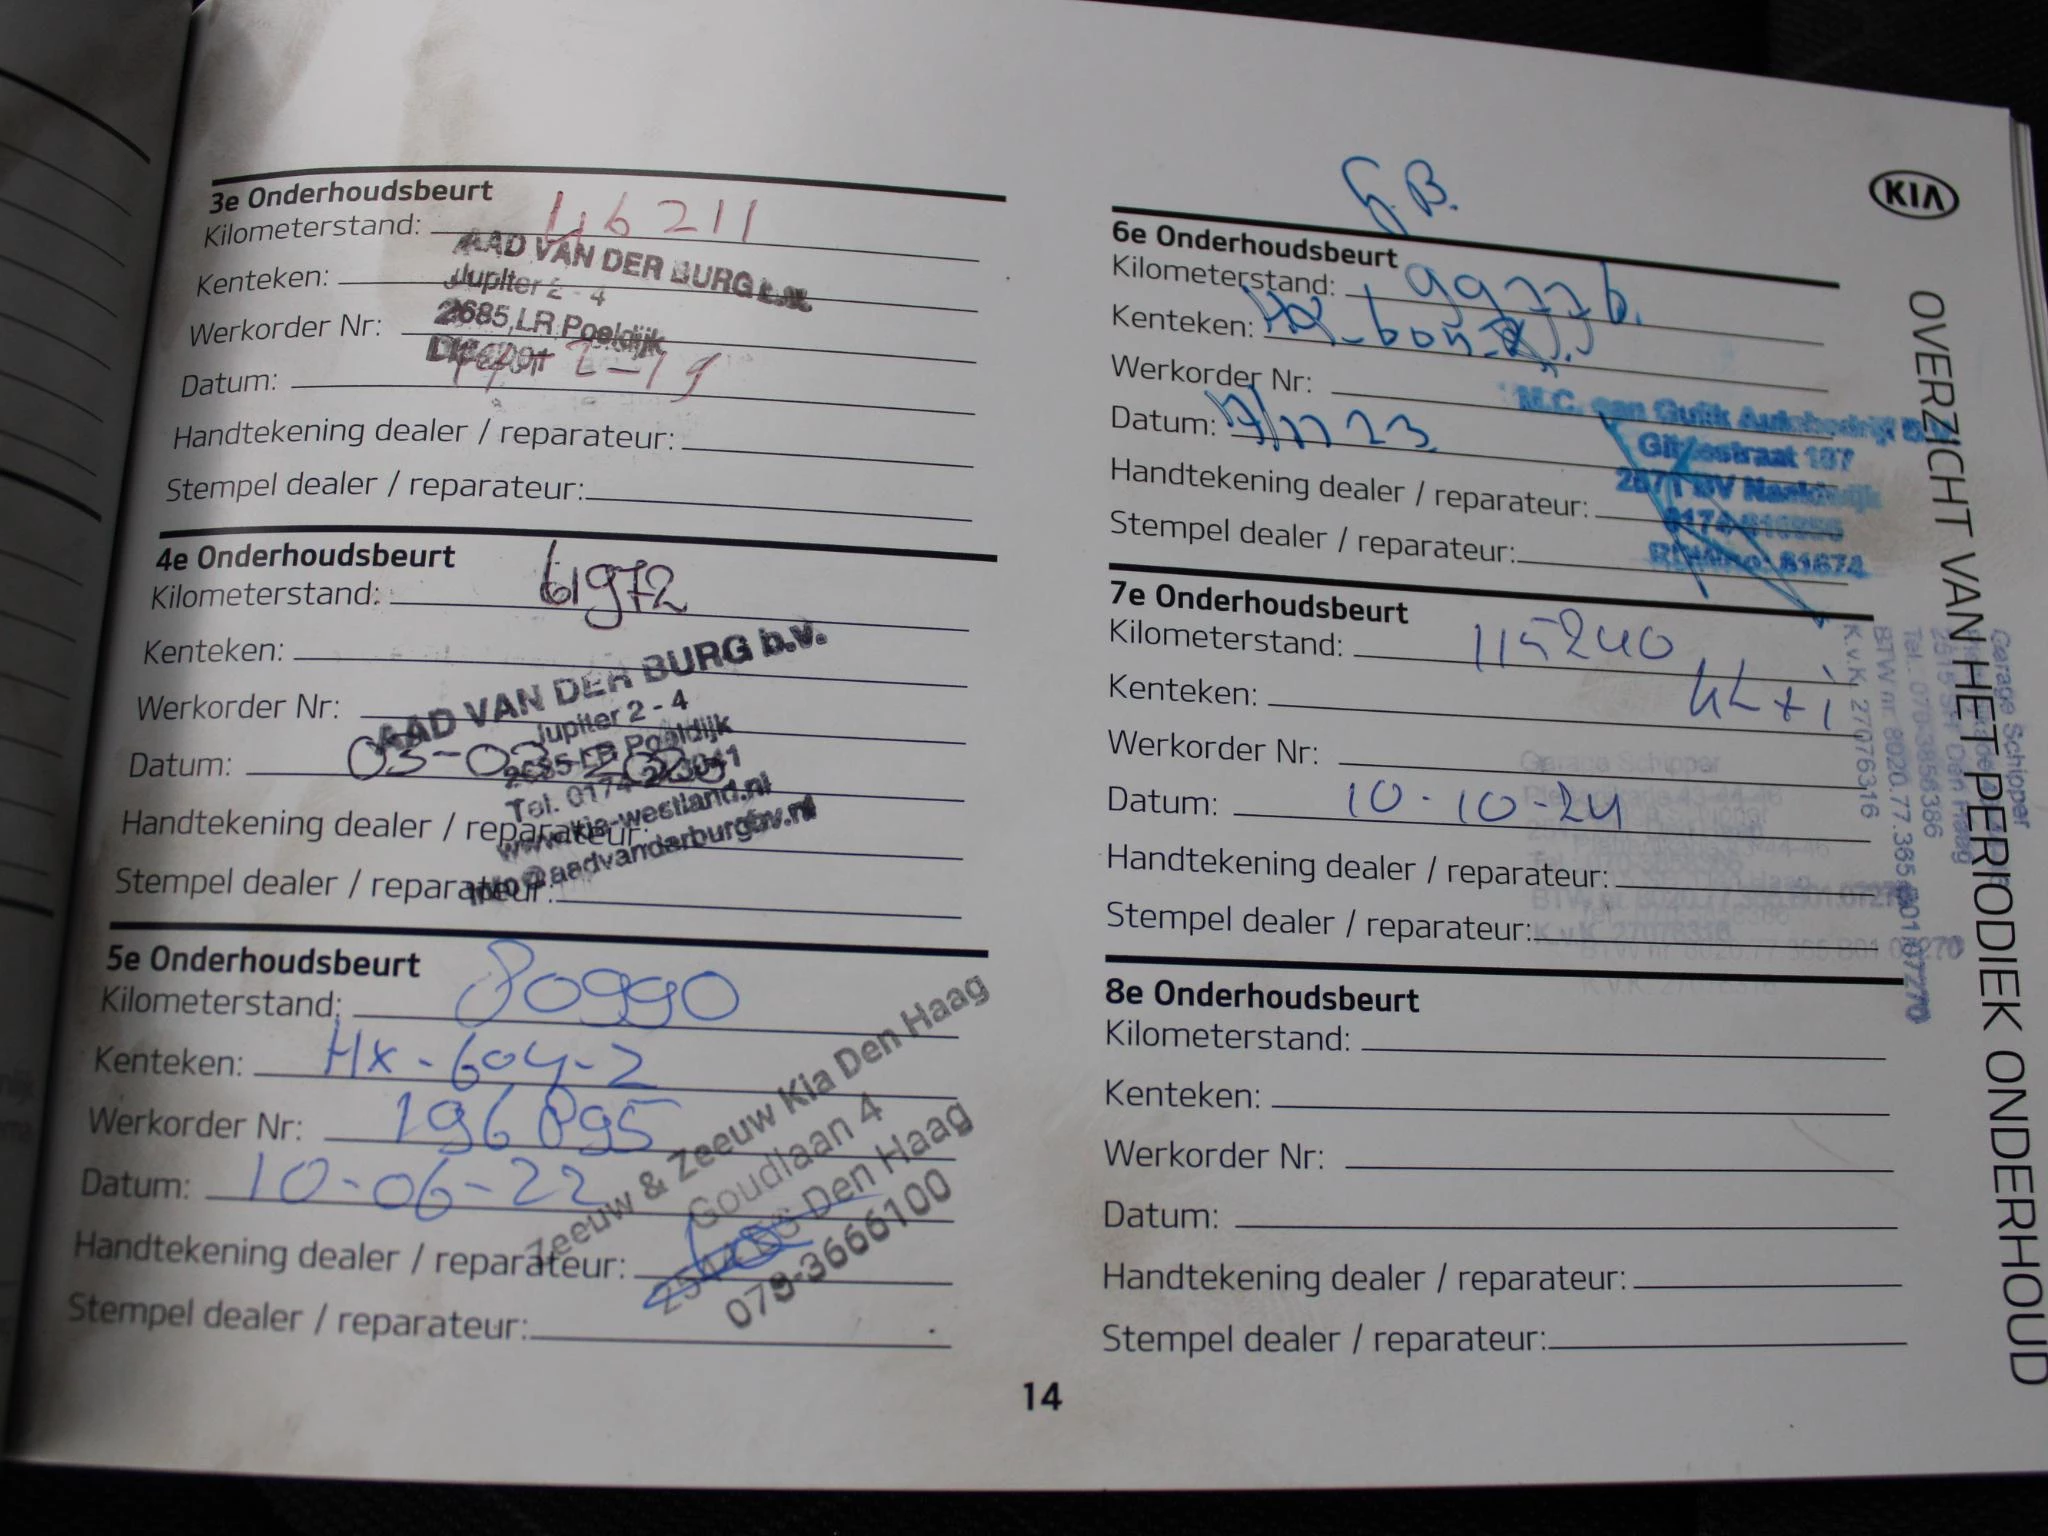 3e Onderhoudsbeurt
Kilometerstand: 46211
AAD VAN DER BURG b.v.
Kenteken:
Jupiter 2 - 4
Werkorder Nr:
2685 LR Poeldijk
Datum: 2-19
Handtekening dealer / reparateur:
Stempel dealer / reparateur:
4e Onderhoudsbeurt
Kilometerstand: 61972
Kenteken:
AAD VAN DER BURG b.v.
Werkorder Nr:
Jupiter 2 - 4
2685 LR Poeldijk
Datum: 03-03-
Tel. 0174
Handtekening dealer / reparateur:
www.kia-westland.nl
info@aadvanderburgbv.nl
Stempel dealer / reparateur:
5e Onderhoudsbeurt
Kilometerstand: 80990
Kenteken: HX-604-Z
Werkorder Nr: 196895
Datum: 10-06-22
Handtekening dealer / reparateur:
Stempel dealer / reparateur:
Zeeuw & Zeeuw Kia Den Haag
Goudlaan 4
2544 EG Den Haag
070-3666100
G.B.
6e Onderhoudsbeurt
Kilometerstand: 99776.
Kenteken:
Werkorder Nr:
Datum: 23
Handtekening dealer / reparateur:
Stempel dealer / reparateur:
M.C. van Gulik Autobedrijf B.V.
7e Onderhoudsbeurt
Kilometerstand: 115240
Kenteken:
Werkorder Nr:
Datum: 10-10-24
Handtekening dealer / reparateur:
Stempel dealer / reparateur:
Garage Schipper
K.v.K. 27076316
8e Onderhoudsbeurt
Kilometerstand:
Kenteken:
Werkorder Nr:
Datum:
Handtekening dealer / reparateur:
Stempel dealer / reparateur:
KIA
OVERZICHT VAN HET PERIODIEK ONDERHOUD
Garage Schipper
Den Haag
K.v.K. 27076316
14